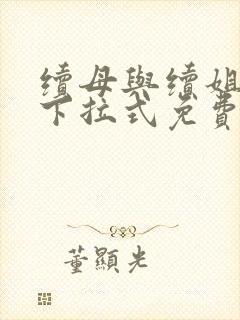 續母與續姐
下拉式免費
董顯光